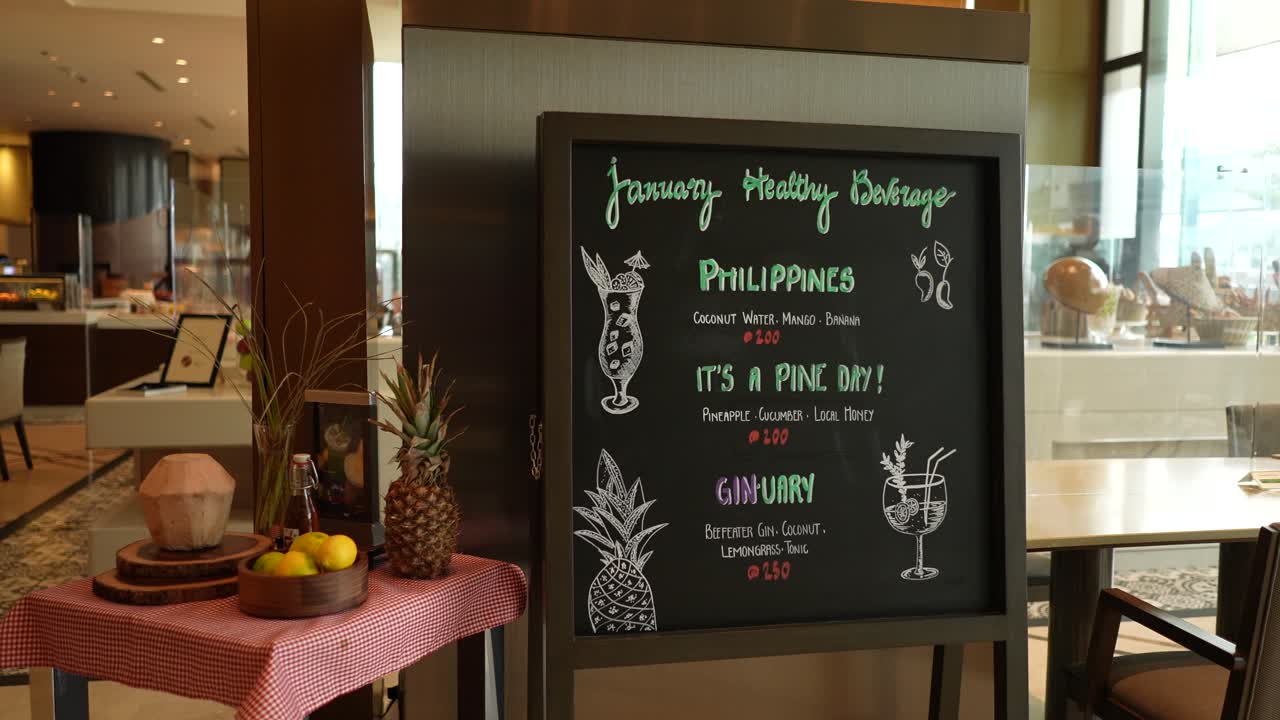 January Healthy Beverage
PHILIPPINES
COCONUT WATER · MANGO · BANANA
@200
IT'S A PINE DAY!
PINEAPPLE · CUCUMBER · LOCAL HONEY
@200
GIN·UARY
BEEFEATER GIN, COCONUT,
LEMONGRASS · TONIC
@250